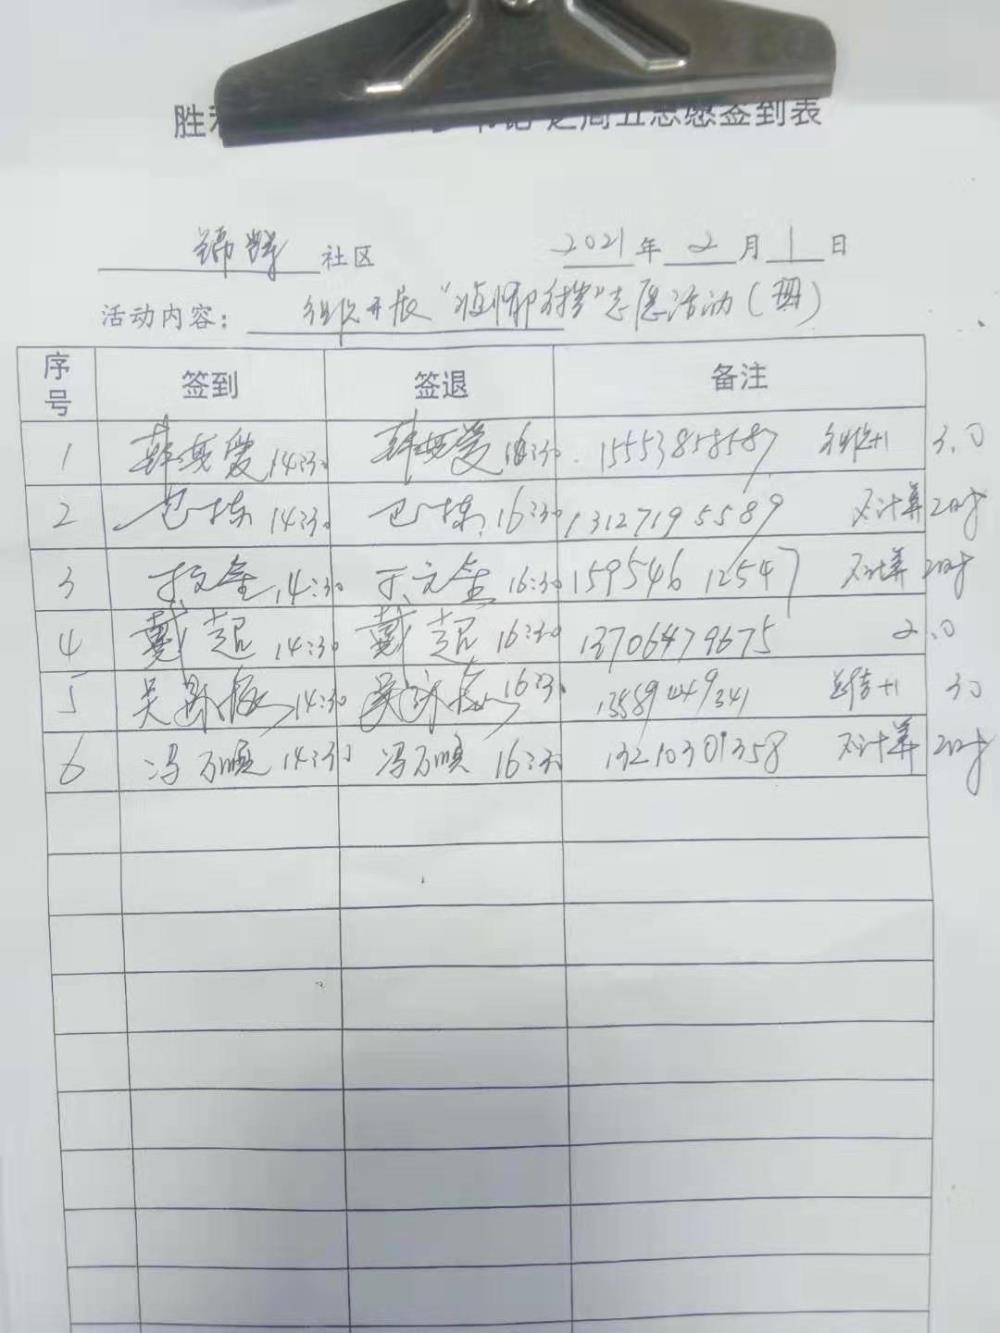 胜 周五志愿签到表
锦辉 社区 2021 年 2 月 1 日
活动内容： 组织开展“ ”志愿活动（ ）
序号 签到 签退 备注
1 韩英爱 14:30 韩英爱 16:30 15553858587 组织+1 3.0
2 栋 14:30 栋 16:30 13127195589 不计算 2时
3 14:30 16:30 15954612547 不计算 2时
4 戴超 14:30 戴超 16:30 13706479675 2.0
5 吴 14:30 吴 16:30 13589449341 +1 30
6 冯万顺 14:30 冯万顺 16:30 13210301358 不计算 2时